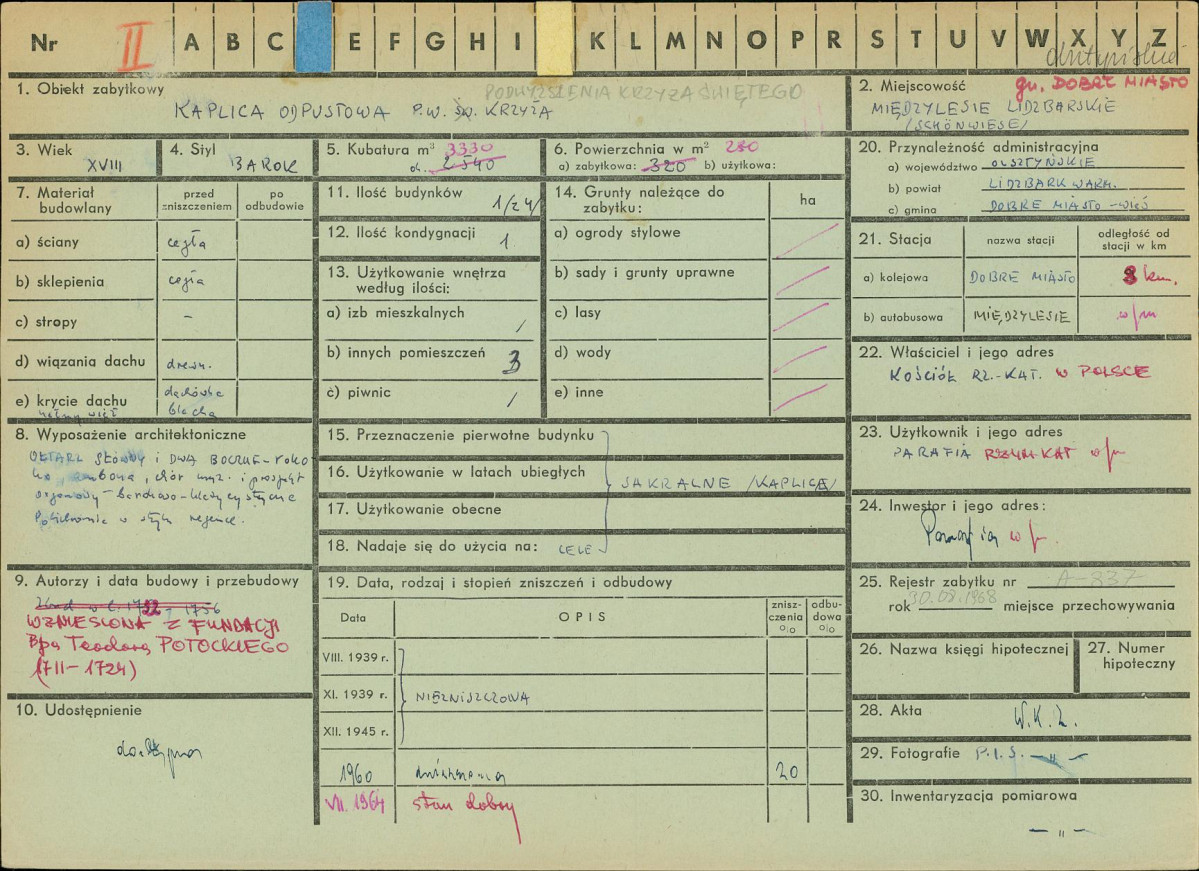 Nr II A B C E F G H I K L M N O P R S T U V W X Y Z
1. Obiekt zabytkowy
PODWYŻSZENIA KRZYŻA ŚWIĘTEGO
KAPLICA ODPUSTOWA P.W. ŚW. KRZYŻA
2. Miejscowość gm. DOBRE MIASTO
MIĘDZYLESIE LIDZBARSKIE
/SCHÖNWIESE/
3. Wiek
XVIII
4. Styl
BAROK
5. Kubatura m³ 3330
ok. 2540
6. Powierzchnia w m² 280
a) zabytkowa: 320 b) użytkowa:
20. Przynależność administracyjna
a) województwo OLSZTYŃSKIE
b) powiat LIDZBARK WARM.
c) gmina DOBRE MIASTO-WIEŚ
7. Materiał budowlany
przed zniszczeniem
po odbudowie
a) ściany cegła
b) sklepienia cegła
c) stropy –
d) wiązania dachu drewn.
e) krycie dachu dachówka
hełmy wież blacha
11. Ilość budynków 1/24/
12. Ilość kondygnacji 1
13. Użytkowanie wnętrza
według ilości:
a) izb mieszkalnych /
b) innych pomieszczeń 3
c) piwnic /
14. Grunty należące do
zabytku:
ha
a) ogrody stylowe
b) sady i grunty uprawne
c) lasy
d) wody
e) inne
21. Stacja
nazwa stacji
odległość od
stacji w km
a) kolejowa DOBRE MIASTO 8 km.
b) autobusowa MIĘDZYLESIE w/m
22. Właściciel i jego adres
KOŚCIÓŁ RZ.-KAT. W POLSCE
8. Wyposażenie architektoniczne
OŁTARZ GŁÓWNY i DWA BOCZNE - roko
ko, ambona, chór muz. i prospekt
organowy - barokowo-klasycystyczne
w stylu regencji.
15. Przeznaczenie pierwotne budynku
16. Użytkowanie w latach ubiegłych
SAKRALNE /KAPLICA/
17. Użytkowanie obecne
18. Nadaje się do użycia na: CELE
23. Użytkownik i jego adres
PARAFIA RZYM KAT w/m
24. Inwestor i jego adres:
Parafia w/m.
9. Autorzy i data budowy i przebudowy
Zbud. w l. 1722 - 1756
WZNIESIONA Z FUNDACJI
Bpa Teodora POTOCKIEGO
(1711-1724)
19. Data, rodzaj i stopień zniszczeń i odbudowy
Data
OPIS
znisz-
czenia
%
odbu-
dowa
%
VIII. 1939 r.
XI. 1939 r. NIEZNISZCZONA
XII. 1945 r.
1960 20
VII. 1964 stan dobry
25. Rejestr zabytku nr A-837
rok 30.08.1968 miejsce przechowywania
26. Nazwa księgi hipotecznej
27. Numer
hipoteczny
10. Udostępnienie
dostępna
28. Akta W.K.Z.
29. Fotografie P.I.S. — " —
30. Inwentaryzacja pomiarowa
— " —